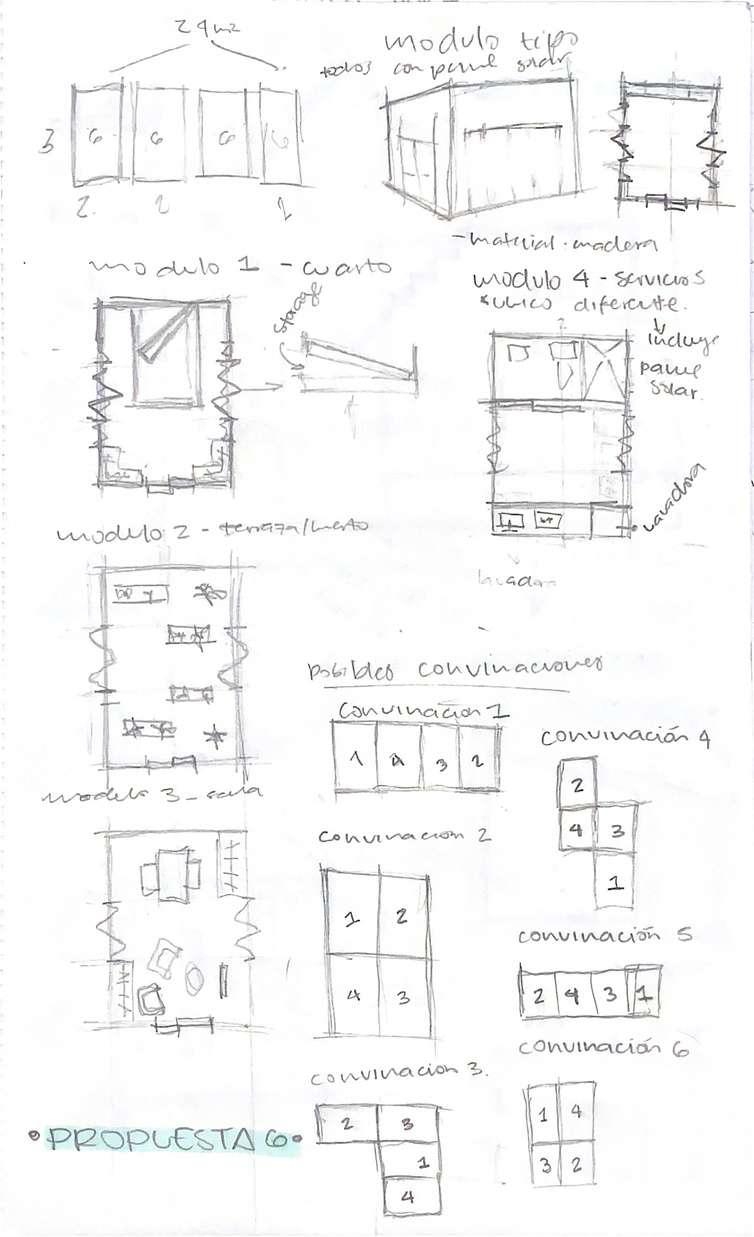 24m2
3
6
6
6
6
2
2
2
modulo tipo
todos con panel solar
- material - madera
modulo 1 - cuarto
storage
modulo 4 - servicios
*unico diferente.
incluye
panel
solar.
lavadora
lavadora
modulo 2 - terraza/huerto
modulo 3 - sala
posibles convinaciones
convinación 1
1 4 3 2
convinación 2
1 2
4 3
convinacion 3.
2 3
1
4
convinación 4
2
4 3
1
convinación 5
2 4 3 1
convinación 6
1 4
3 2
• PROPUESTA 6 •